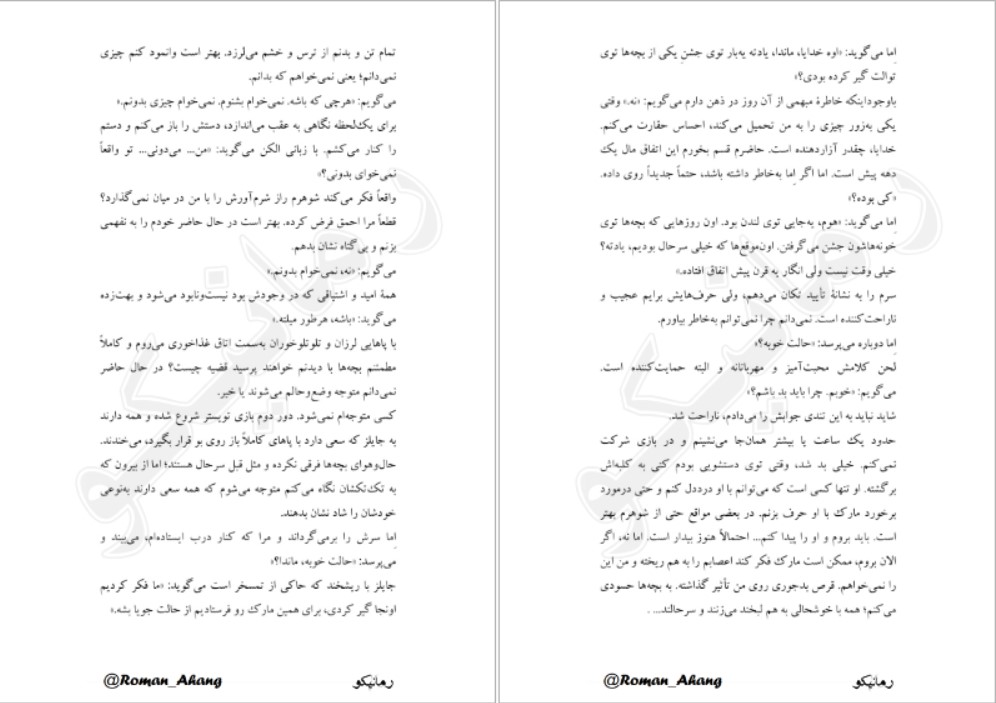 تمام تن و بدنم از ترس و خشم می‌لرزد. بهتر است وانمود کنم چیزی
نمی‌دانم؛ یعنی نمی‌خواهم که بدانم.
می‌گویم: «هرچی که باشه. نمی‌خوام بشنوم. نمی‌خوام چیزی بدونم.»
برای یک‌لحظه نگاهی به عقب می‌اندازد، دستش را باز می‌کنم و دستم
را کنار می‌کشم. با زبانی الکن می‌گوید: «من... می‌دونی... تو واقعاً
نمی‌خوای بدونی؟»
واقعاً فکر می‌کند شوهرم راز شرم‌آورش را با من در میان نمی‌گذارد؟
قطعاً مرا احمق فرض کرده. بهتر است در حال حاضر خودم را به نفهمی
بزنم و بی‌گناه نشان بدهم.
می‌گویم: «نه، نمی‌خوام بدونم.»
همهٔ امید و اشتیاقی که در وجودش بود نیست‌ونابود می‌شود و بهت‌زده
می‌گوید: «باشه، هرطور میلته.»
با پاهایی لرزان و تلوتلوخوران به‌سمت اتاق غذاخوری می‌روم و کاملاً
مطمئنم بچه‌ها با دیدنم خواهند پرسید قضیه چیست؟ در حال حاضر
نمی‌دانم متوجه وضع‌وحالم می‌شوند یا خیر.
کسی متوجه‌ام نمی‌شود. دور دوم بازی توییستر شروع شده و همه دارند
به جایلز که سعی دارد با پاهای کاملاً باز روی بو قرار بگیرد، می‌خندند.
حال‌وهوای بچه‌ها فرقی نکرده و مثل قبل سرحال هستند؛ اما از بیرون که
به تک‌تکشان نگاه می‌کنم متوجه می‌شوم که همه سعی دارند به‌نوعی
خودشان را شاد نشان بدهند.
اِما سرش را برمی‌گرداند و مرا که کنار درب ایستاده‌ام، می‌بیند و
می‌پرسد: «حالت خوبه، ماندا؟»
جایلز با ریشخند که حاکی از تمسخر است می‌گوید: «ما فکر کردیم
اونجا گیر کردی، برای همین مارک رو فرستادیم از حالت جویا بشه.»
رمانیکو @Roman_Ahang
اِما می‌گوید: «اوه خدایا، ماندا، یادته یه‌بار توی جشنِ یکی از بچه‌ها توی
توالت گیر کرده بودی؟»
باوجوداینکه خاطرهٔ مبهمی از آن روز در ذهن دارم می‌گویم: «نه.» وقتی
یکی به‌زور چیزی را به من تحمیل می‌کند، احساس حقارت می‌کنم.
خدایا، چقدر آزاردهنده است. حاضرم قسم بخورم این اتفاق مال یک
دهه پیش است. اما اگر اِما به‌خاطر داشته باشد، حتماً جدیداً روی داده.
«کی بوده؟»
اِما می‌گوید: «هوم، یه‌جایی توی لندن بود. اون روزهایی که بچه‌ها توی
خونه‌هاشون جشن می‌گرفتن. اون‌موقع‌ها که خیلی سرحال بودیم، یادته؟
خیلی وقت نیست ولی انگار یه قرن پیش اتفاق افتاده.»
سرم را به نشانهٔ تأیید تکان می‌دهم، ولی حرف‌هایش برایم عجیب و
ناراحت‌کننده است. نمی‌دانم چرا نمی‌توانم به‌خاطر بیاورم.
اِما دوباره می‌پرسد: «حالت خوبه؟»
لحن کلامش محبت‌آمیز و مهربانانه و البته حمایت‌کننده است.
می‌گویم: «خوبم. چرا باید بد باشم؟»
شاید نباید به این تندی جوابش را می‌دادم، ناراحت شد.
حدود یک ساعت یا بیشتر همان‌جا می‌نشینم و در بازی شرکت
نمی‌کنم. خیلی بد شد، وقتی توی دستشویی بودم کتی به کلبه‌اش
برگشته. او تنها کسی است که می‌توانم با او دردِدل کنم و حتی درمورد
برخورد مارک با او حرف بزنم. در بعضی مواقع حتی از شوهرم بهتر
است. باید بروم و او را پیدا کنم... احتمالاً هنوز بیدار است. اما نه، اگر
الان بروم، ممکن است مارک فکر کند اعصابم را به هم ریخته و من این
را نمی‌خواهم. قرص بدجوری روی من تأثیر گذاشته. به بچه‌ها حسودی
می‌کنم؛ همه با خوشحالی به هم لبخند می‌زنند و سرحالند... .
رمانیکو @Roman_Ahang
رمانیکو
رمانیکو